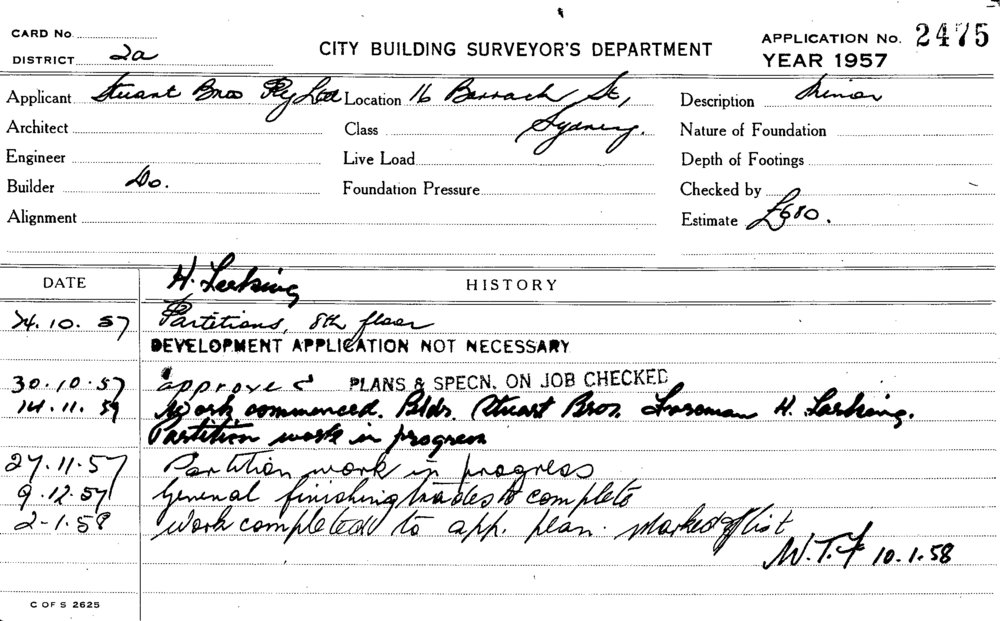 CARD No.
DISTRICT 2a
CITY BUILDING SURVEYOR'S DEPARTMENT
APPLICATION No. 2475
YEAR 1957
Applicant Stuart Bros Pty Ltd Location 16 Barrack St, Description Minor
Architect Class Sydney. Nature of Foundation
Engineer Live Load Depth of Footings
Builder Do. Foundation Pressure Checked by
Alignment Estimate £680.
DATE H. Larking HISTORY
24.10.57 Partitions, 8th floor
DEVELOPMENT APPLICATION NOT NECESSARY
30.10.57 approved PLANS & SPECN. ON JOB CHECKED
14.11.57 Work commenced. Bldr. Stuart Bros. Foreman H. Larking.
Partition work in progress
27.11.57 Partition work in progress
9.12.57 General finishing trades to complete
2-1.58 Work completed to app. plan. Marked off list
W.T.F 10.1.58
C OF S 2625